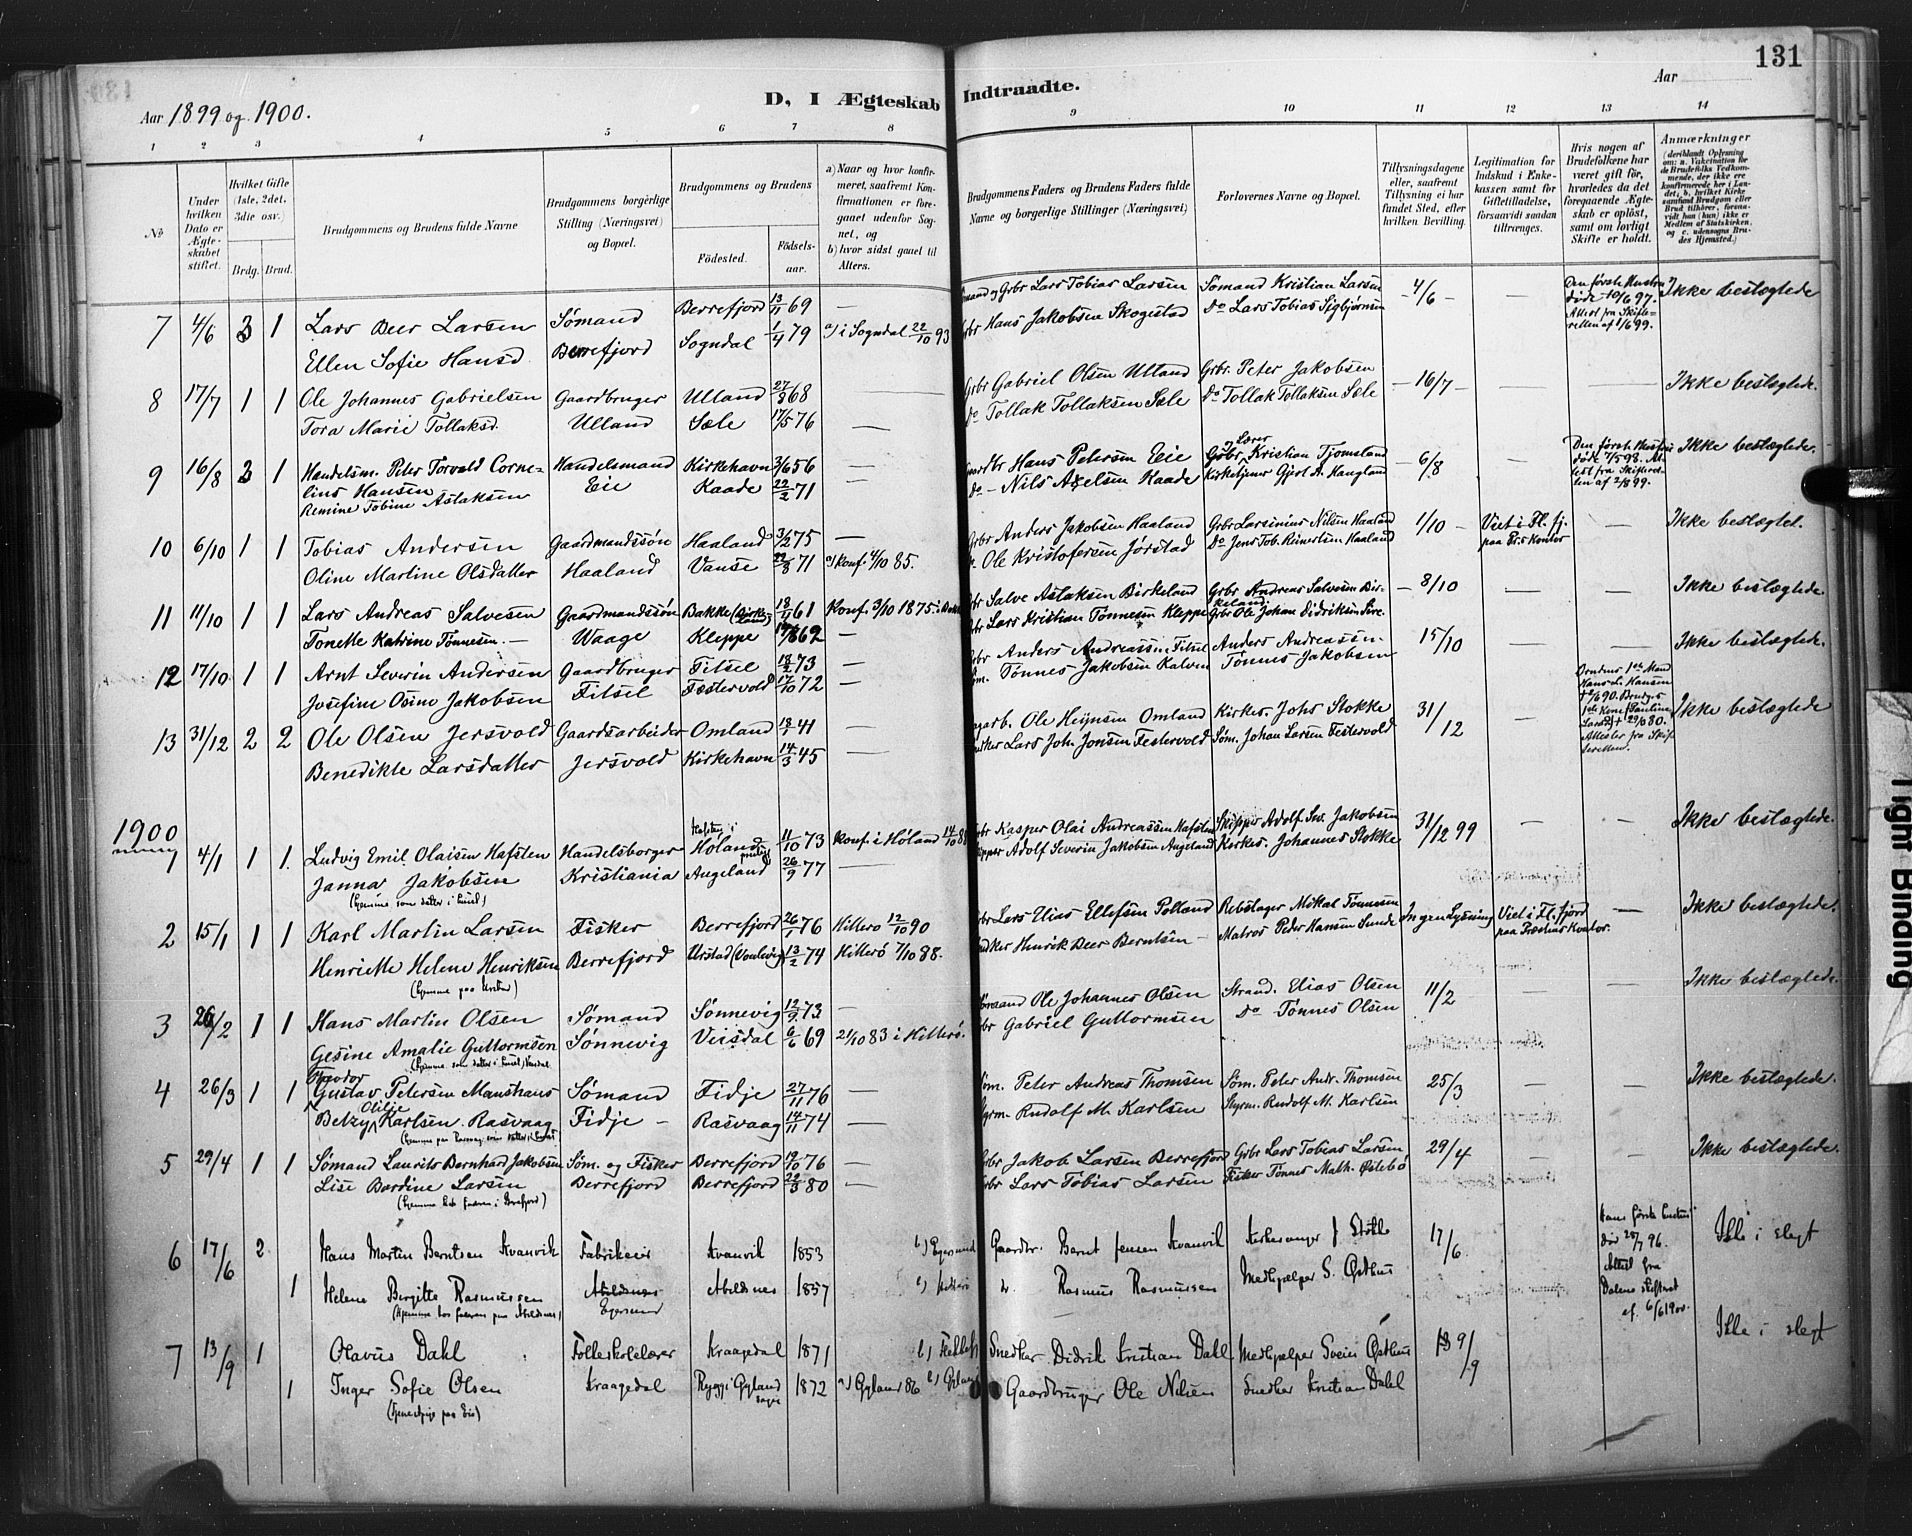 131
Aar 1899 og 1900.
D, I Ægteskab Indtraadte.
Aar
1 2 3 4 5 6 7 8 9 10 11 12 13 14
No
Under hvilken Dato er Ægteskabet stiftet.
Hvilket Gifte (1ste, 2det, 3die osv.)
Brdg. Brud.
Brudgommens og Brudens fulde Navne
Brudgommens borgerlige Stilling (Næringsvei) og Bopæl.
Brudgommens og Brudens
Fødested. Fødselsaar.
a) Naar og hvor konfirmeret, saafremt Konfirmationen er foregaaet udenfor Sognet, og
b) hvor sidst gaaet til Alters.
Brudgommens Faders og Brudens Faders fulde Navne og borgerlige Stillinger (Næringsvei)
Forlovernes Navne og Bopæl.
Tillysningsdagene eller, saafremt Tillysning ei har fundet Sted, efter hvilken Bevilling.
Legitimation for Indskud i Enkekassen samt for Giftetilladelse, forsaavidt saadan tiltrænges.
Hvis nogen af Brudefolkene har været gift før, hvorledes da det foregaaende Ægteskab er opløst, samt om lovligt Skifte er holdt.
Anmærkninger
(deriblandt Oplysning om: a. Vakcination for de Brudefolks Vedkommende, der ikke ere konfirmerede her i Landet; b. hvilket Kirkesamfund Brudgom eller Brud tilhører, forsaavidt han (hun) ikke er Medlem af Statskirken, og c. udensogns Brudes Hjemsted.)
7 4/6 3 1 Lars Beer Larsen Sømand Berrefjord 13/11 69 — Sømand og Grbr Lars Tobias Larsen Sømand Kristian Larsen — 4/6 — — Den første Hustru døde 10/6 97. Attest fra Skifteretten af 1/6 99. Ikke beslægtede
Ellen Sofie Hansd. Berrefjord Sogndal 1/4 79 a) i Sogndal 22/10 93 Grbr Hans Jakobsen Skogestad Do Lars Tobias Sigbjørnsen
8 17/7 1 1 Ole Johannes Gabrielsen Gaardbruger Ulland 27/3 68 — Grbr Gabriel Olsen Ulland Grbr. Peter Jakobsen — 16/7 — — — Ikke beslægtede.
Tora Marie Tollaksd. Ulland Sæle 17/5 76 — Do Tollak Tollaksen Sæle Do Tollak Tollaksen Sæle
9 16/8 3 1 Handelsm. Peter Torvald Cornelius Hansen Handelsmand Kirkehavn 3/6 56 — Gaardbr Hans Petersen Eie Lærer og Grbr. Kristian Tjomsland — 6/8 — Den første Hustru døde 7/5 98. Attest fra Skifteretten af 2/8 99. Ikke beslægtede.
Remine Tobine Aslaksen Eie Kaade 22/2 71 — Do — Nils Axelsen Kaade Kirketjener Gjert A. Haugland
10 6/10 1 1 Tobias Andersen Gaardmandssøn Haaland 3/2 75 — Grbr Anders Jakobsen Haaland Grbr Larsinius Nilsen Haaland 1/10 — Viet i Fl. fj. paa Pr.s Kontor — Ikke beslægtet.
Oline Martine Olsdatter Haaland Vanse 22/8 71 a) Konf. 4/10 85. Ole Kristofersen Jørstad Do Jens Tob. Reinertsen Haaland
11 11/10 1 1 Lars Andreas Salvesen Gaardmandssøn Bakke (Birkeland) 18/11 61 Konf. 3/10 1875 i Bakke Grbr Salve Aslaksen Birkeland Grbr Andreas Salvesen Birkeland. — 8/10 — — Ikke beslægtede.
Tonette Katrine Tønnesen. — Waage Kleppe 62 — Grbr Lars Kristian Tønnesen Kleppe Grbr Ole Johan Didriksen Sire.
12 17/10 1 1 Arnt Severin Andersen Gaardbruger Titsel 18/2 73 — Grbr Anders Andreassen Titsel Anders Andreassen 15/10 — Ikke beslægtede.
Josefine Osine Jakobsen Titsel Festervold 17/10 72 — Søm. Tønnes Jakobsen Kalven Tønnes Jakobsen
13 31/12 2 2 Ole Olsen Jersvold Gaardsarbeider Omland 18/1 41 — Ole Heynsen Omland Kirkes. Johs Stokke 31/12 — Brudens 1ste Mand Hans L. Hansen 90. Brudgs 1ste Kone (Pauline Larsd.) † 29/6 80. Attester fra Skifteretten. Ikke beslægtede
Benedikte Larsdatter Jersvold Kirkehavn 14/3 45 — Lars Joh. Jonsen Festervold Søm. Johan Larsen Festervold
1900
1 4/1 1 1. Ludvig Emil Olaisen Hafsten Handelsborger Høland 11/10 73 Konf. i Høland 14/10 88 Grbr Kasper Olai Andreassen Hafsten Skipper Adolf Sev. Jakobsen 31/12 99 — — Ikke beslægtede.
Janna Jakobsen Kristiania Angeland 26/9 77 — Skipper Adolf Severin Jakobsen Angeland Kirkes. Johannes Stokke
(hjemme som datter i huset)
2 15/1 1 1 Karl Martin Larsen Fisker Berrefjord 26/1 76 Hitterø 12/10 90 Grbr Lars Elias Ellefsen Polland Rebslager Mikal Tønnesen Ingen Lysning Viet i Fl. fjord paa Præstens Kontor. — Ikke beslægtede.
Henriette Helene Henriksen Berrefjord Urstad (Vonlevig) 13/2 74 Hitterø 7/10 88. Henrik Beer Berntsen — Matros Peder Hansen Sunde
3 26/2 1 1 Hans Martin Olsen Sømand Sønnevig 12/9 73 — Sømand Ole Johannes Olsen Strand. Elias Olsen 11/2 — — Ikke beslægtede.
Gesine Amalie Guttormsen Sønnevig Veisdal 6/6 69 21/10 83 i Hitterø. Grbr Gabriel Guttormsen Do Tønnes Olsen
(hjemme som datter i huset) Veisdal
4 26/3 1 1 Teodor Gustav Petersen Manshaus Sømand Fidje 27/11 76 — Søm. Peter Andreas Thomsen Søm. Peter Andr. Thomsen 25/3 — — Ikke beslægtede.
Betzy Otilie Karlsen Rasvaag Fidje — Rasvaag 14/11 74 — Styrm. Rudolf M. Karlsen Styrm. Rudolf M. Karlsen
(hjemme paa Rasvaag som datter i huset)
5 29/4 1 1 Sømand Laurits Bernhard Jakobsen Søm. og Fisker Berrefjord 12/10 76 — Grbr Jakob Larsen Berrefjord Grbr Lars Tobias Larsen 29/4 — — Ikke beslægtede.
Lise Bardine Larsen Berrefjord Berrefjord 22/3 80 — Grbr Lars Tobias Larsen Fisker Tønnes Math. Østebø
(hjemme hos faderen i Berefjord)
6 17/6 2 Hans Martin Berntsen Kvanvik Fabrikeier Kvanvik 1853 b) Egersund Gaardbr. Bernt Jensen Kvanvik Kirkesanger J. Stokke 17/6 Hans første hustru dør 28/7 96. Attest fra Dalene skifteret af 6/6 1900. Ikke i slegt
1 Helene Birgitte Rasmussen Abeldnæs Egersund Abeldnes 1857 b) Hitterø Rasmus Rasmussen Medhjælper S. Østhus
(Hjemme hos faderen paa Abeldnes)
7 13/9 1 Olavus Dahl Folkeskolelærer Kraagedal 1871 b) Flekkefj. Snedker Didrik Kristian Dahl Medhjælper Svein Østhus 9/9 Ikke i slegt
1 Inger Sofie Olsen Kraagedal Rygg i Gyland sogn 1872 a) Gyland 86 b) Gyland Gaardbruger Ole Nilsen Snedker Kristian Dahl
(Tjenestepige paa Eie)
Tight Binding